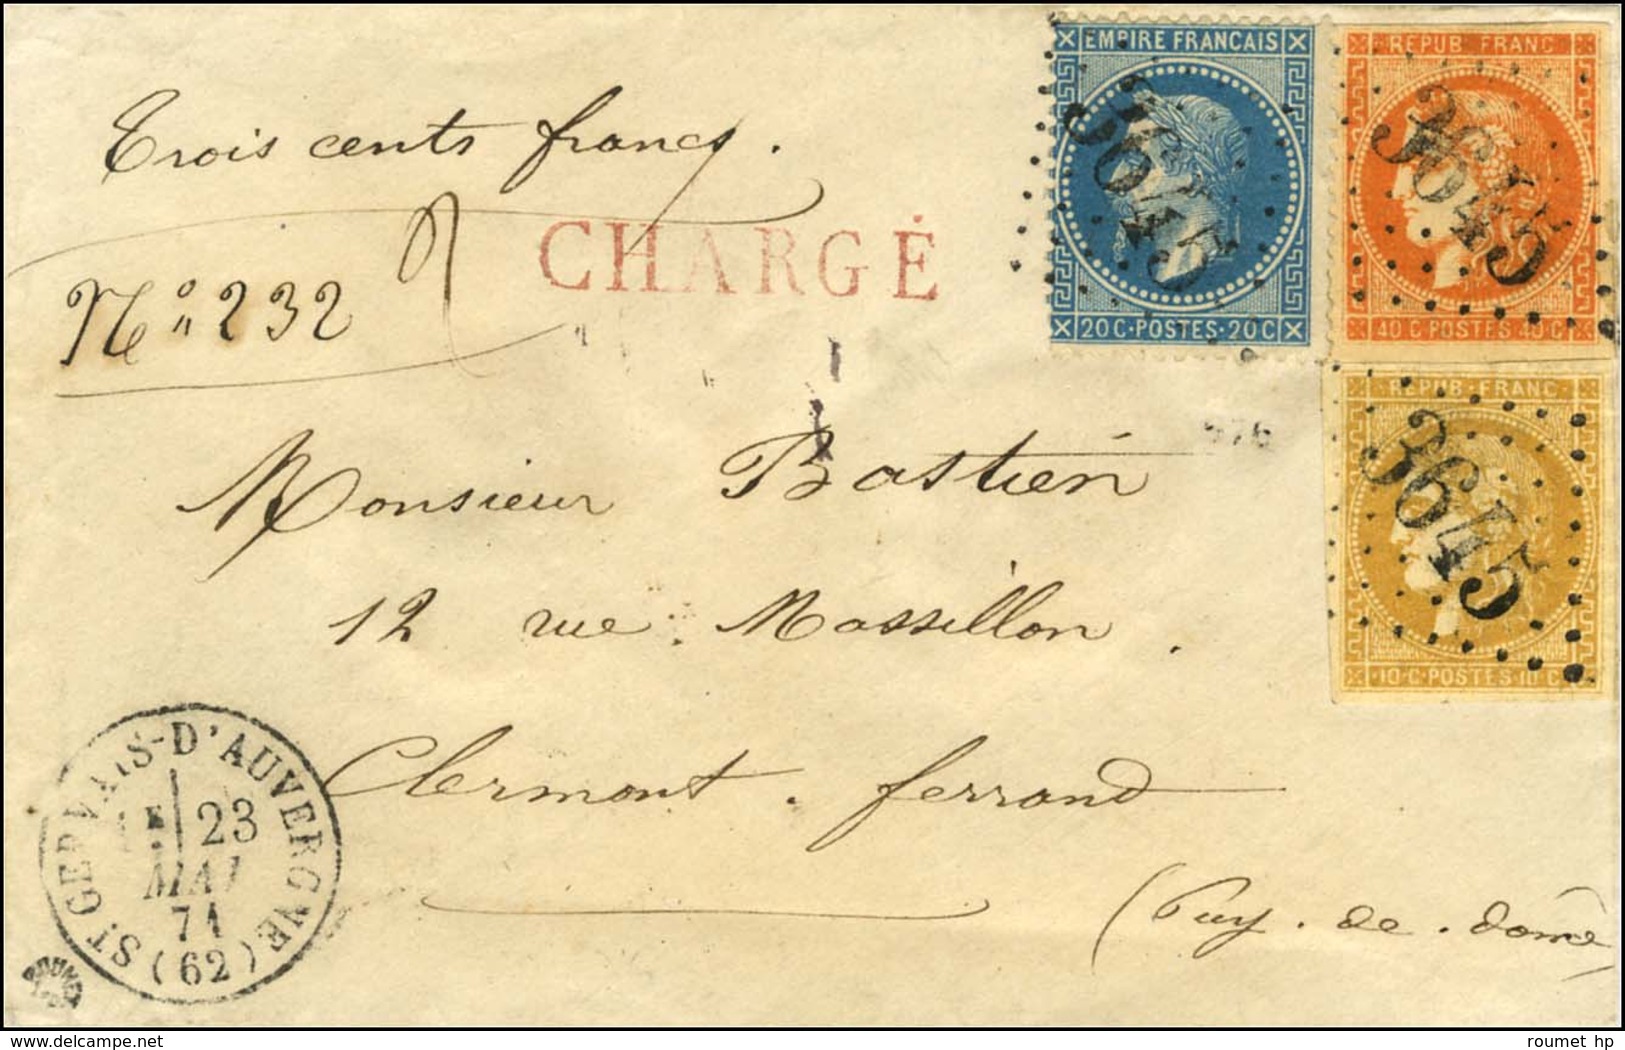 Trois cents francs.
N° 232
CHARGÉ
EMPIRE FRANCAIS
20 C · POSTES · 20 C
3645
REPUB FRANC
40 C POSTES 40 C
3645
REPUB · FRANC
10 C POSTES 10 C
3645
Monsieur Bastien
12 rue Massillon.
Clermont. ferrand
(Puy. de. dôme
ST GERVAIS-D'AUVERGNE
23
MAI
71
(62)
ROUMET
roumet hp